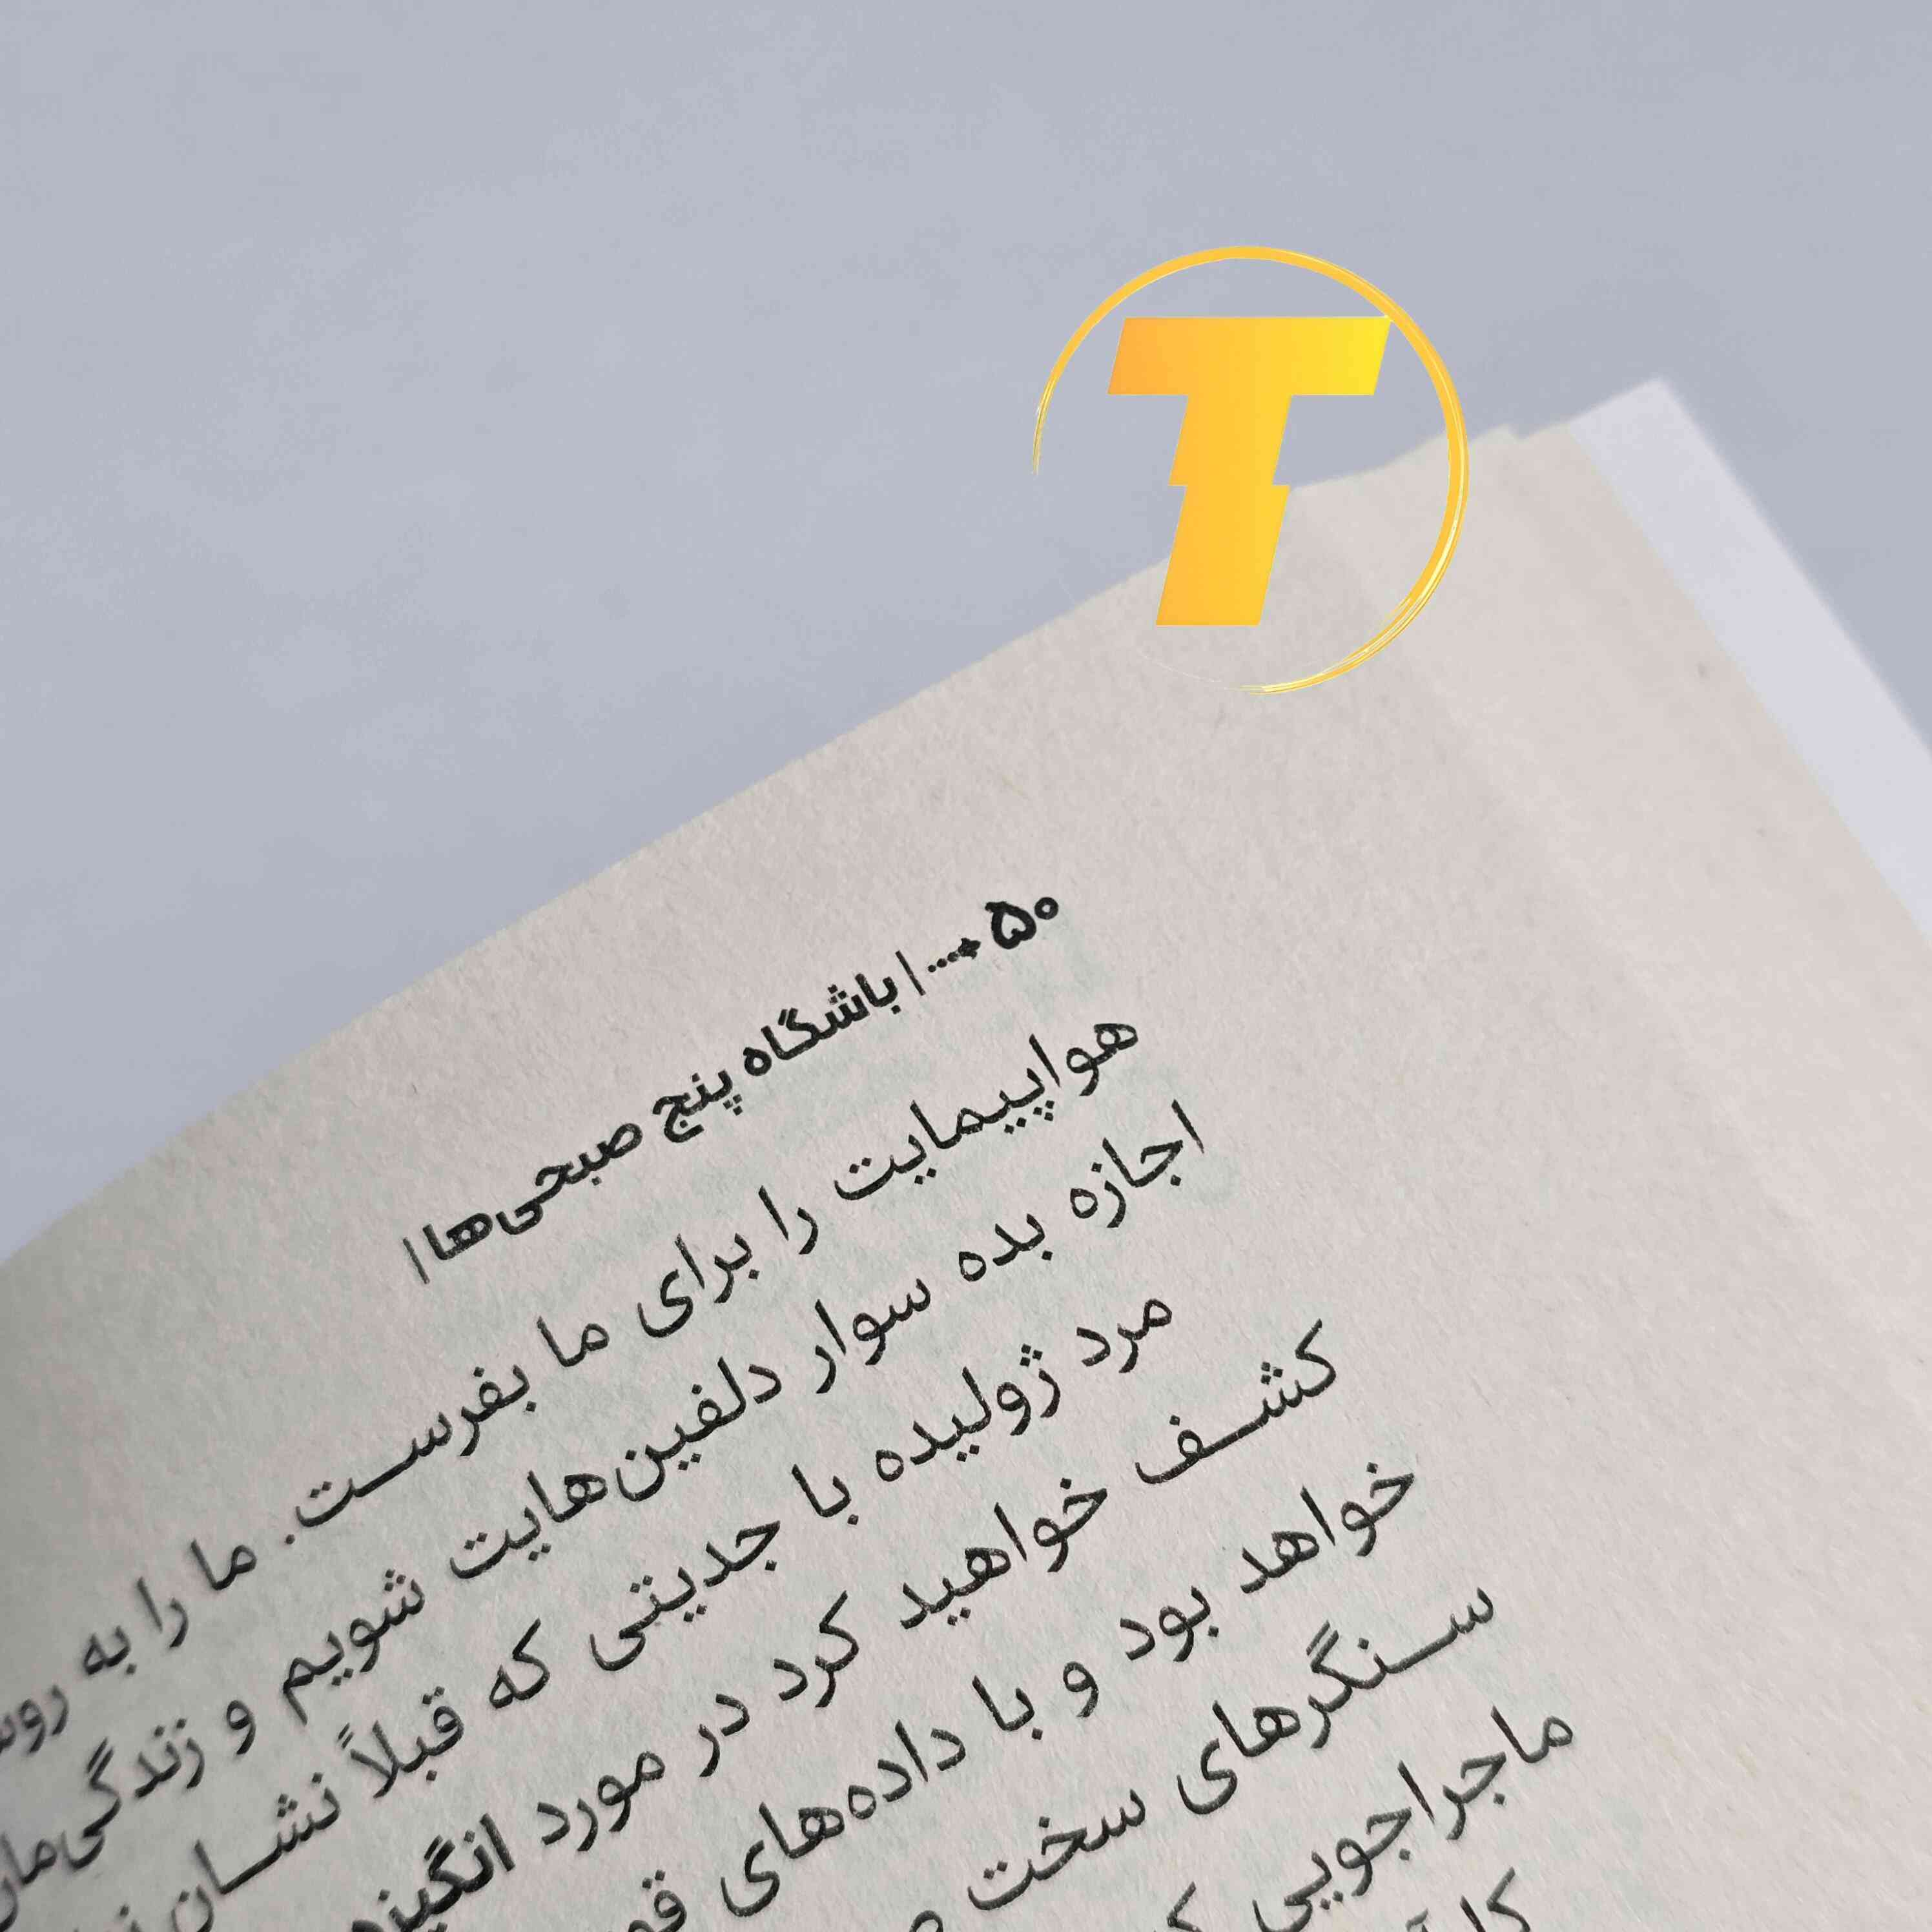 T
۵۰ ... | باشگاه پنج صبحی‌ها |
هواپیمایت را برای ما بفرست. ما را به
اجازه بده سوار دلفین‌هایت شویم و زندگی‌مان
مرد ژولیده با جدیتی که قبلاً نشان
کشف خواهید کرد در مورد
خواهد بود و با داده‌های
سنگرهای سخت
ماجراجویی